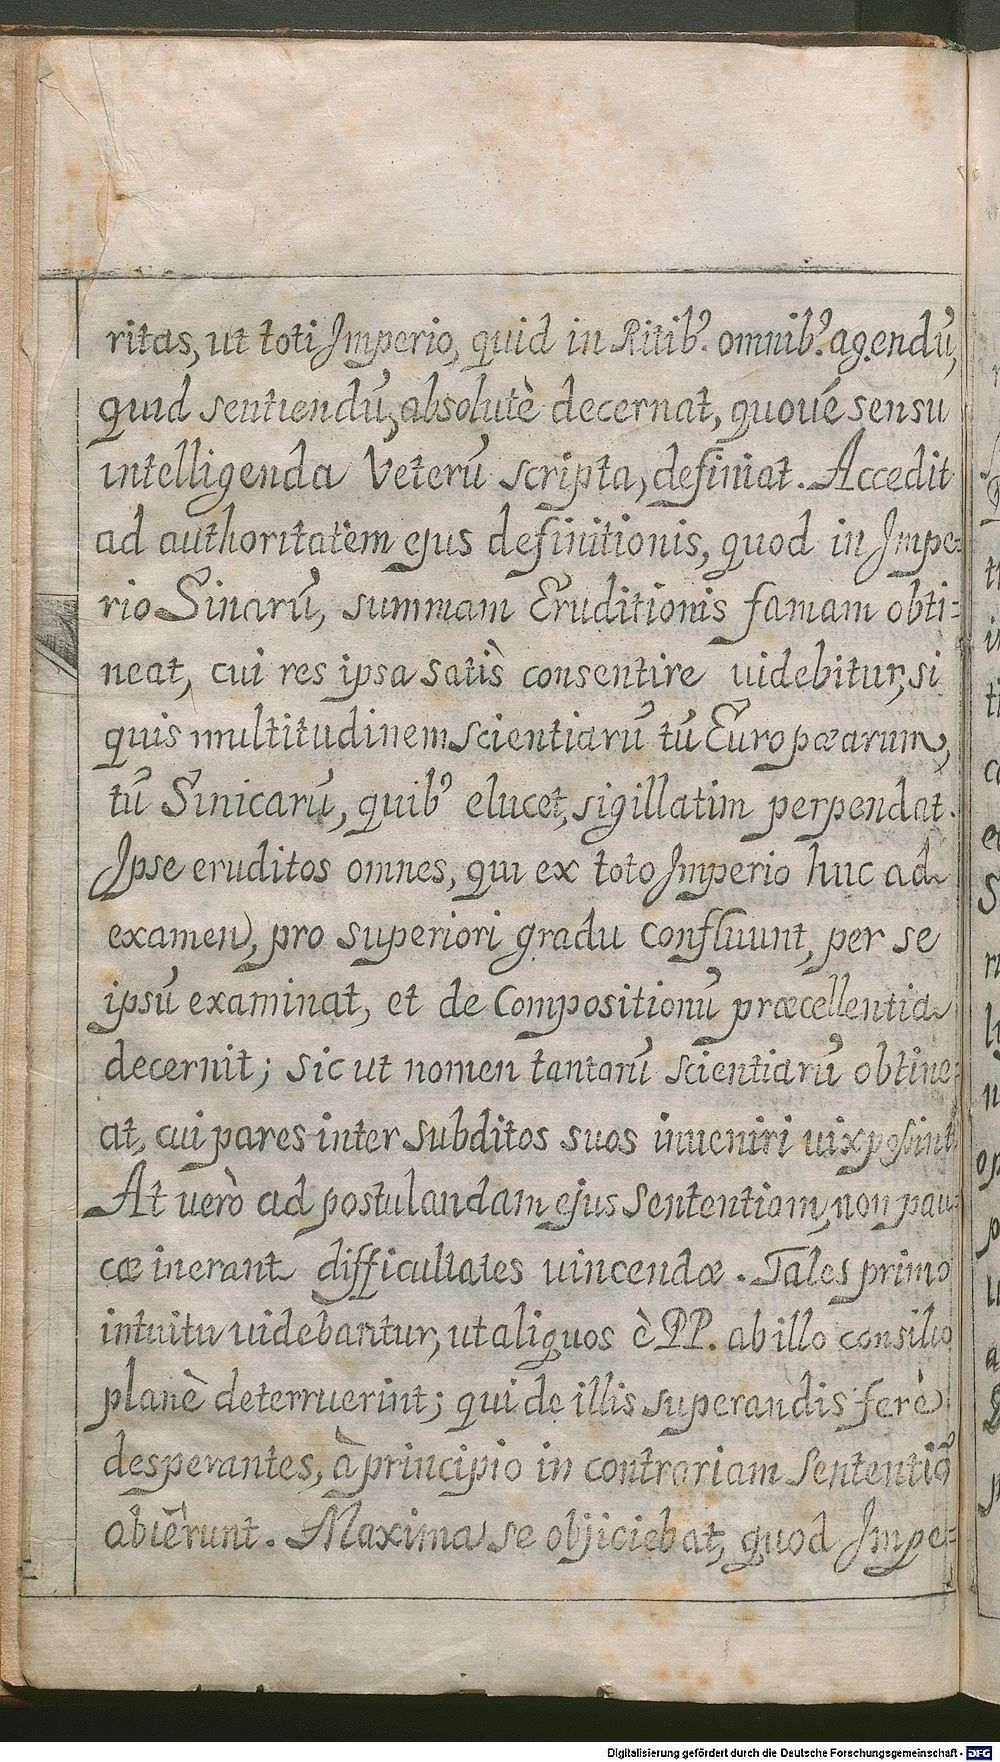 ritas, ut toti Imperio, quid in Ritibꝰ. omnibꝰ. agendū,
quid sentiendū, absolutè decernat, quoué sensu
intelligenda Veterū scripta, definiat. Accedit
ad authoritatem ejus definitionis, quod in Impe=
rio Sinarū, summam Eruditionis famam obti=
neat, cui res ipsa satis consentire uidebitur, si
quis multitudinem scientiarū tū Europæarum,
tū Sinicarū, quibꝰ elucet, sigillatim perpendat.
Ipse eruditos omnes, qui ex toto Imperio huc ad
examen, pro superiori gradu confluunt, per se
ipsū examinat, et de Compositionū præcellentia
decernit; sic ut nomen tantarū scientiarū obtine=
at, cui pares inter subditos suos inueniri uix possint.
At uerò ad postulandam ejus Sententiam, non pau=
cæ inerant difficultates uincendæ. Tales primo
intuitu uidebantur, ut aliquos è PP. ab illo consilio
planè deterruerint; qui de illis superandis ferè
desperantes, à principio in contrariam Sententiā
abiērunt. Maxima se objiciebat, quod Impe=
Digitalisierung gefördert durch die Deutsche Forschungsgemeinschaft - DFG